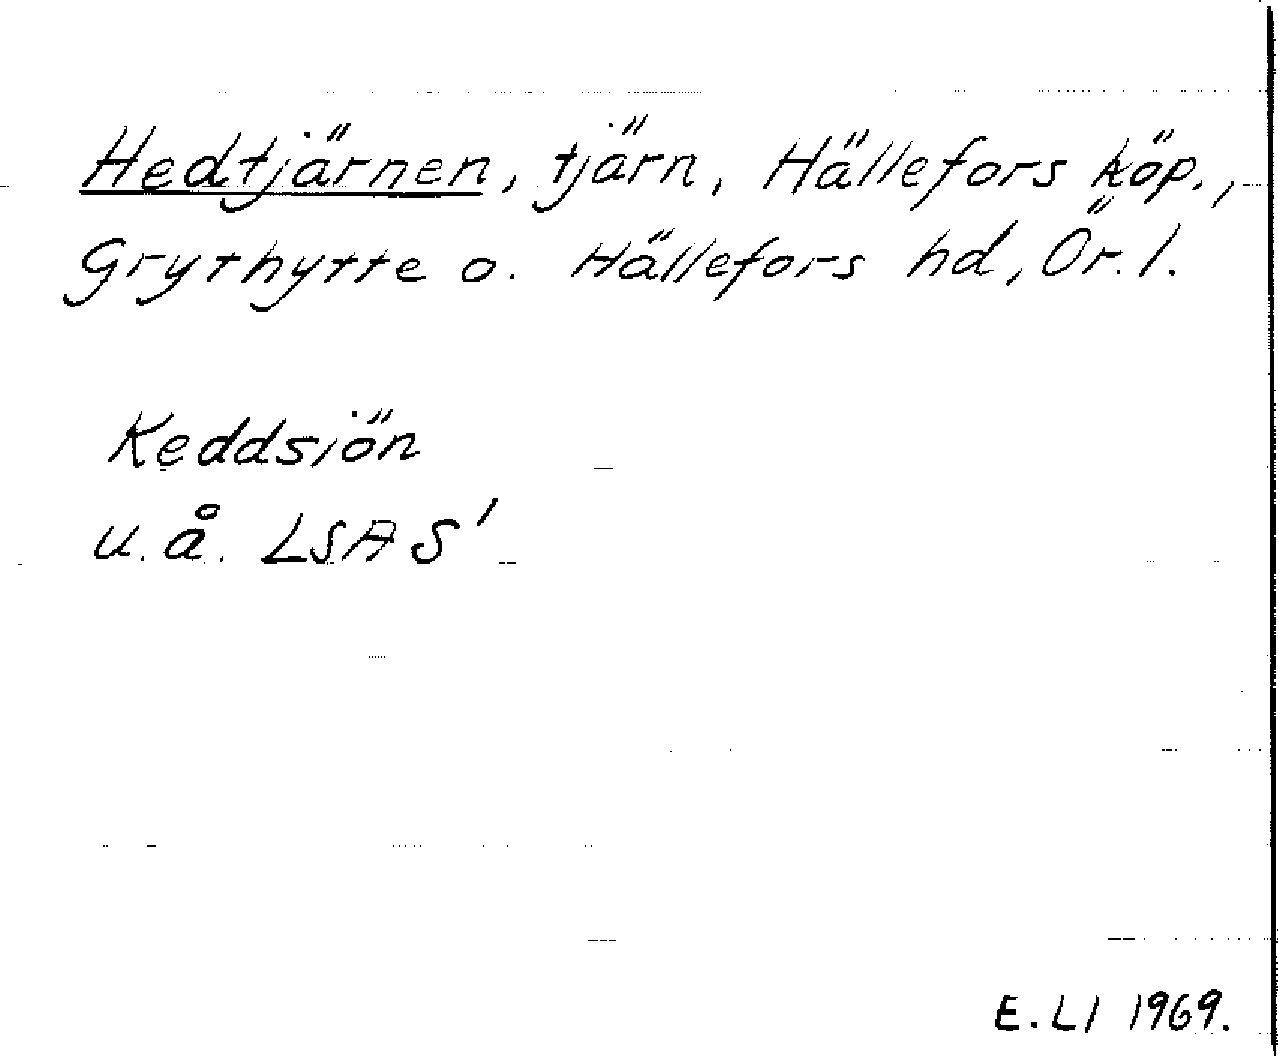 Hedtjärnen, tjärn, Hällefors köp.,
Grythytte o. Hällefors hd, Ör. l.
Keddsiön
u.å. LSA S'
E. LI 1969.